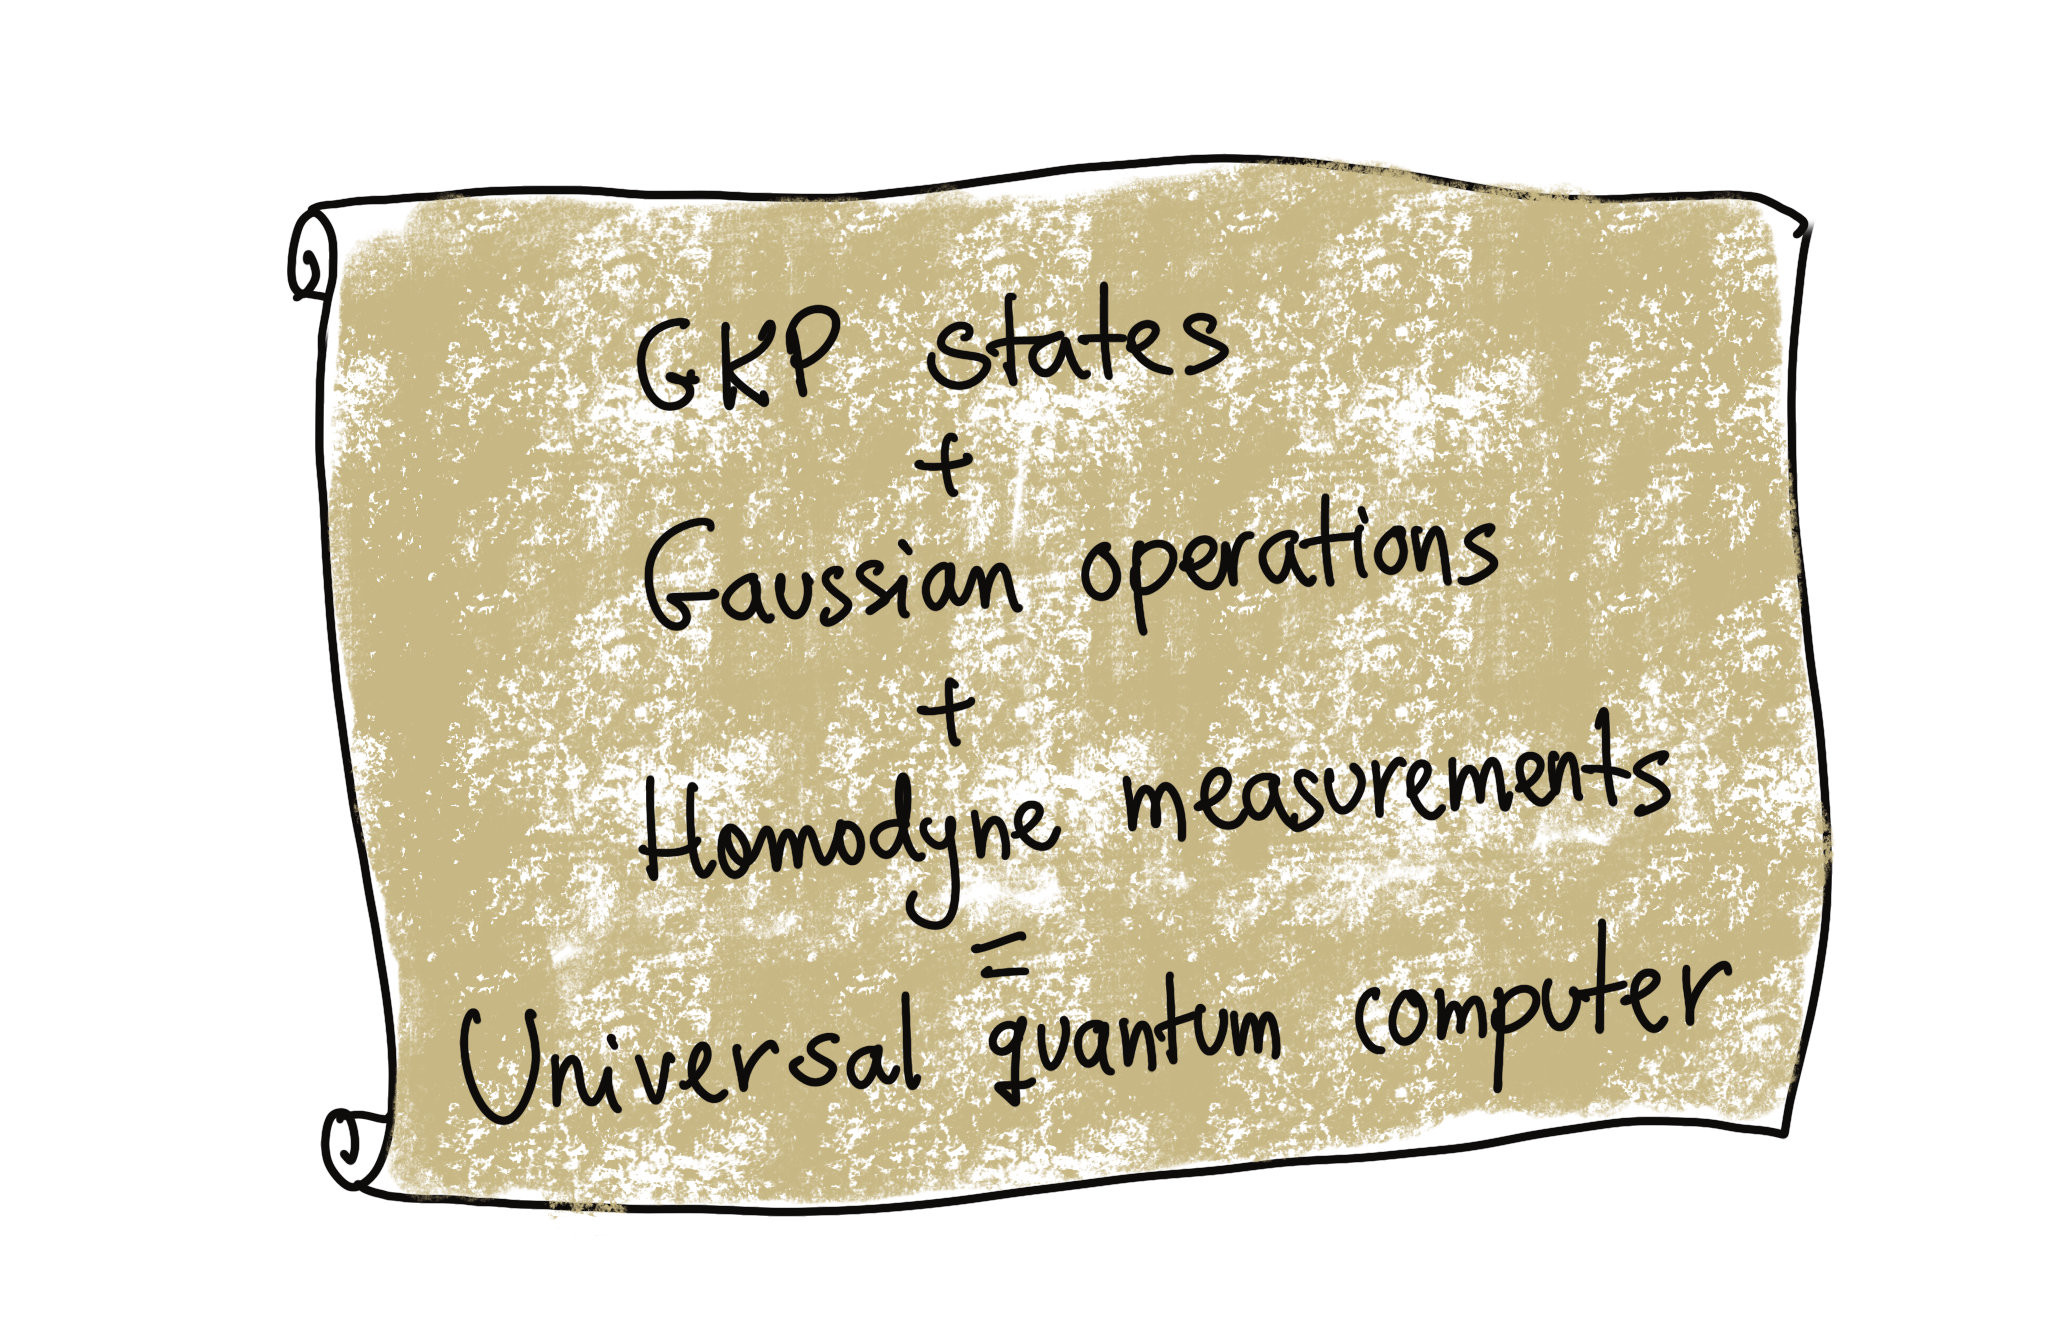 GKP states
+
Gaussian operations
+
Homodyne measurements
=
Universal quantum computer